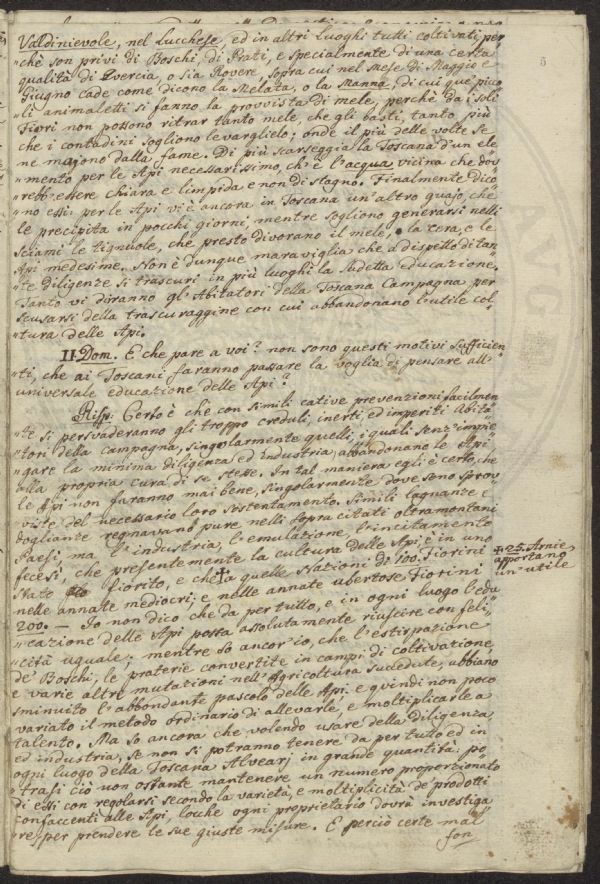 5
Valdinievole, nel Lucchese, ed in altri Luoghi tutti coltivati, per
"chè son privi di Boschi, di Prati, e specialmente di una certa
qualità di Quercia, o sia Rovere, sopra cui nel Mese di Maggio e
Giugno cade come dicono la Melata, o la Manna, di cui que' picco
"li animaletti si fanno la provvista di mele, perchè da i soli
Fiori non possono ritrar tanto mele che gli basti, tanto più
che i contadini sogliono levarglielo; onde il più delle volte se
ne muojono dalla fame. Di più scarseggia la Toscana d'un ele
"mento per le Api necessarissimo, ch'è l'acqua vicina che dov
"rebb'essere chiara e limpida e non di stagno. Finalmente dico
"no essi: per le Api vi è ancora in Toscana un'altro guajo, che
le precipita in pocchi giorni, mentre sogliono generarsi nelli
sciami le tignuole, che presto divorano il mele, la cera, e le
Api medesime. Non è dunque maraviglia che a dispetto di tan
"te diligenze si trascuri in più luoghi la sudetta educazione.
Tanto vi diranno gl'Abitatori della Toscana Campagna per
scusarsi della trascuraggine con cui abbandonano l'utile col
"tura delle Api.
II. Dom. E che pare a voi? non sono questi motivi sufficien
"ti, che ai Toscani faranno passare la voglia di pensare all'
universale educazione delle Api?
Risp. Certo è che con simili cative prevenzioni facilmen
"te si persvaderanno gli troppo creduli, inerti ed imperiti Abita
"tori della campagna, singolarmente quelli, i quali senz'impie
"gare la minima diligenza ed industria, abbandonano le Api
alla propria cura di se stesse. In tal maniera egli è certo, che
le Api non faranno mai bene, singolarmente dove sono sprov
"viste del necessario loro sostentamento. Simili lagnanze e
doglianze regnavano pure nelli sopra citati oltramontani
Paesi, ma l'industria, l'emulazione, l'incitamento
fecesi, che presentemente la cultura delle Api è in uno
Stato fiorito, e che a quelle Nazioni dà 100. Fiorini
nelle annate mediocri; e nelle annate ubertose Fiorini
200. — Io non dico che da per tutto, e in ogni luogo l'edu
"cazione delle Api possa assolutamente riuscire con feli
"cità uguale; mentre so ancor'io, che l'estirpazione
de' Boschi, le praterie convertite in campi di coltivazione,
e varie altre mutazioni nell'Agricoltura succedute, abbiano
sminuito l'abbondante pascolo delle Api, e quindi non poco
variato il metodo ordinario di allevarle, e moltiplicarle a
talento. Ma so ancora che volendo usare della diligenza
ed industria, se non si potranno tenere da per tutto ed in
ogni luogo della Toscana Alvearj in grande quantità: po
"trasi ciò non ostante mantenere un numero proporzionato
di essi con regolarsi secondo la varietà, e moltiplicità de' prodotti
confaccenti alle Api, locche ogni proprietario dovrà investiga
"re, per prendere le sue giuste misure. E perciò certe mal
fon
25. Arnie
apportano
un'utile